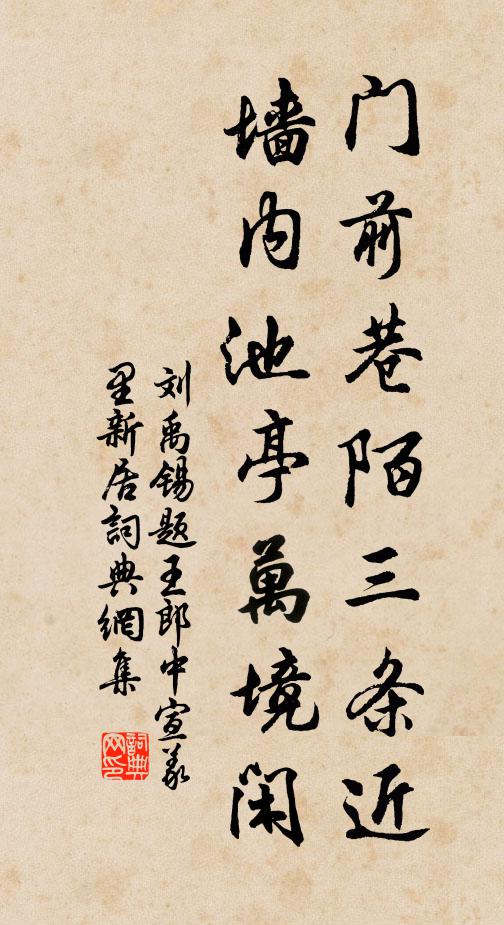 门前巷陌三条近
墙内池亭萬境闲
刘禹锡题王郎中宣义
里新居詞典網集
詞典网印